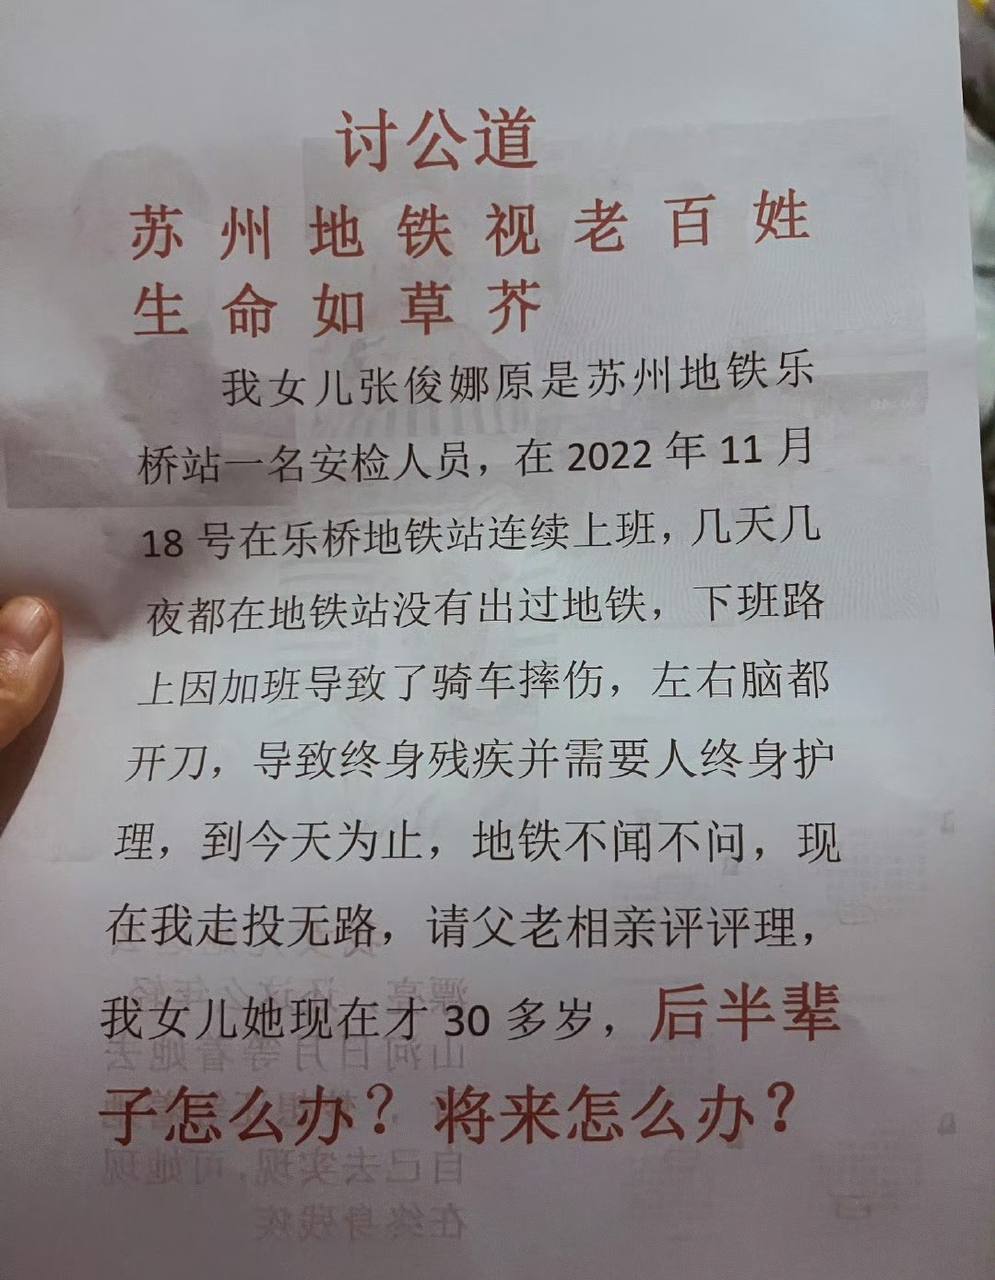 讨公道
苏州地铁视老百姓
生命如草芥
我女儿张俊娜原是苏州地铁乐
桥站一名安检人员，在 2022 年 11 月
18 号在乐桥地铁站连续上班，几天几
夜都在地铁站没有出过地铁，下班路
上因加班导致了骑车摔伤，左右脑都
开刀，导致终身残疾并需要人终身护
理，到今天为止，地铁不闻不问，现
在我走投无路，请父老相亲评评理，
我女儿她现在才 30 多岁，后半辈
子怎么办？将来怎么办？
漂亮，还这么年轻
山河日月等着她去
自己去实现，可她现
在终身残疾